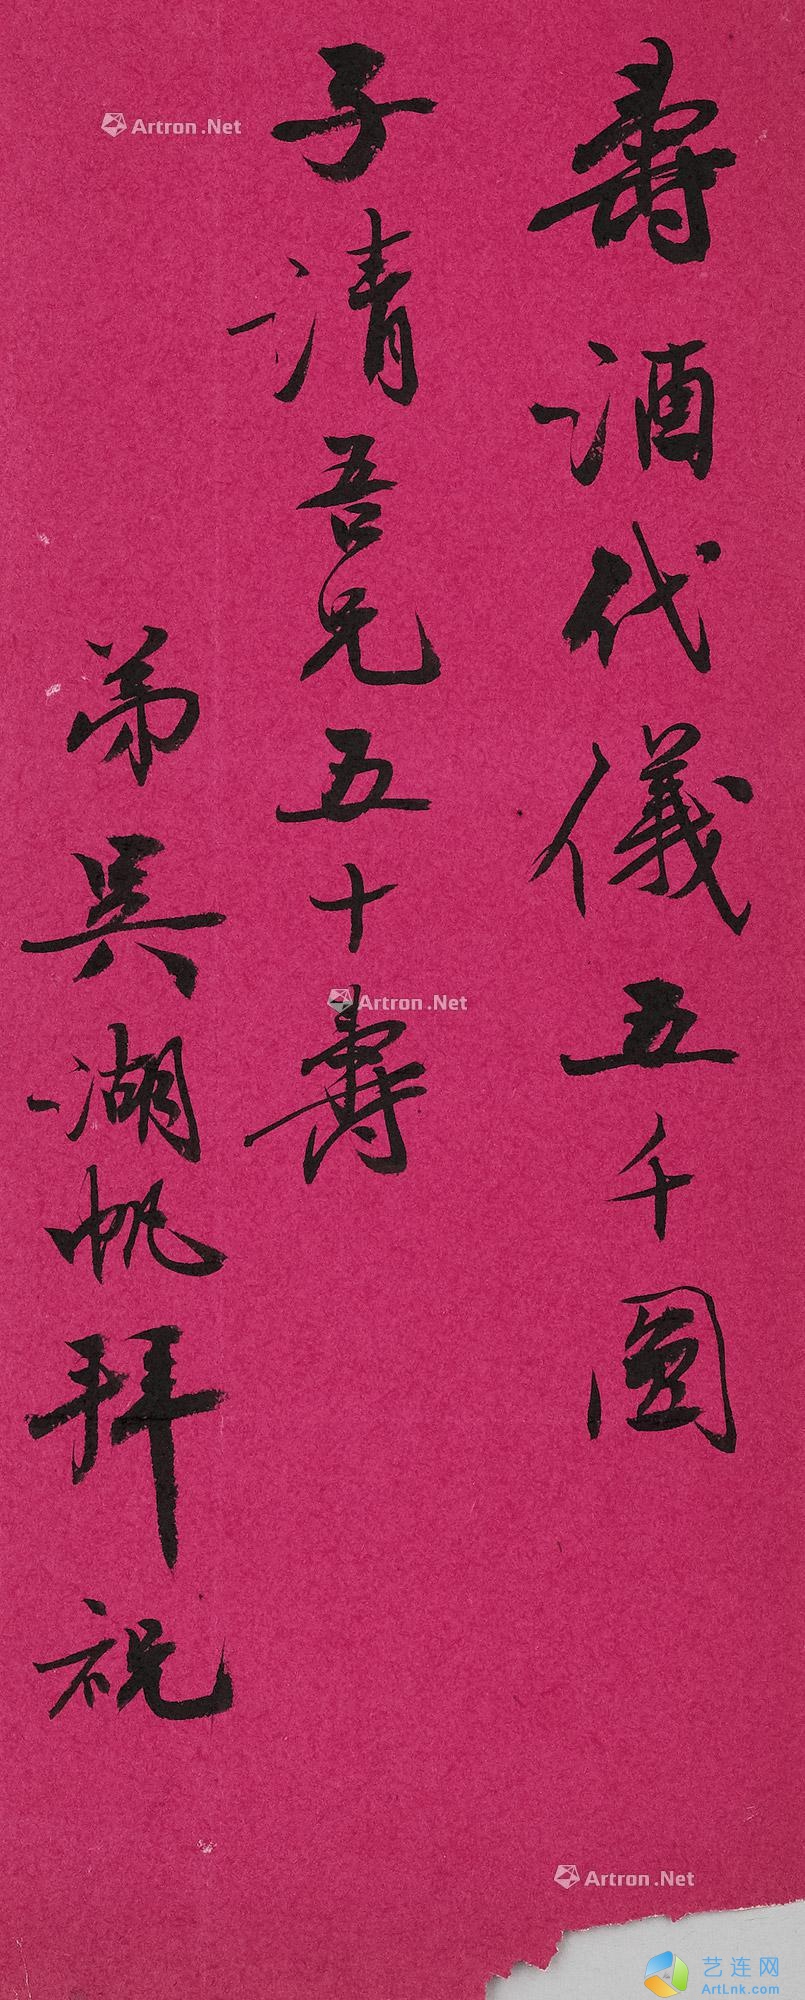 壽酒代儀五千圓
子清吾兄五十壽
弟吳湖帆拜祝
Artron.Net
Artron.Net
Artron.Net
艺连网
ArtLnk.com